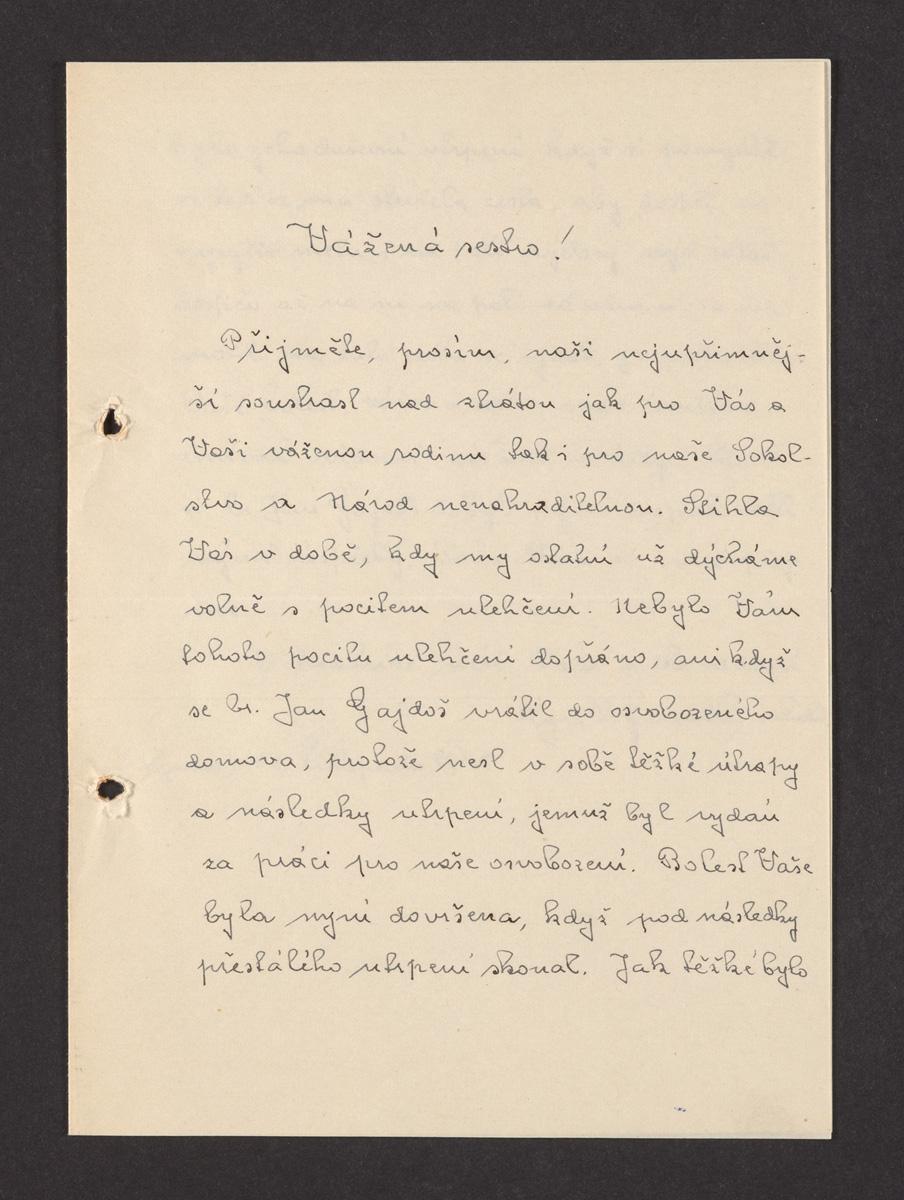 Vážená sestro!
Přijměte, prosím, naši nejupřímněj-
ší soustrast nad ztrátou jak pro Vás a
Vaši váženou rodinu tak i pro naše Sokol-
stvo a Národ nenahraditelnou. Stihla
Vás v době, kdy my ostatní už dýcháme
volně s pocitem ulehčení. Nebylo Vám
tohoto pocitu ulehčení dopřáno, ani když
se br. Jan Gajdoš vrátil do osvobozeného
domova, protože nesl v sobě těžké útrapy
a následky utrpení, jemuž byl vydán
za práci pro naše osvobození. Bolest Vaše
byla nyní dovršena, když pod následky
přestálého utrpení skonal. Jak těžké bylo